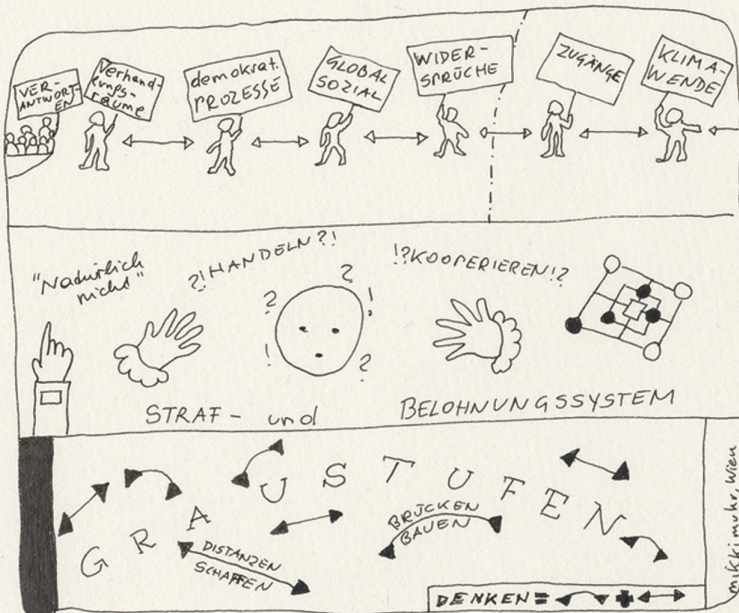 VER-
ANTWORT-
EN
Verhand-
lungs-
räume
demokrat.
PROZESSE
GLOBAL
SOZIAL
WIDER-
SPRÜCHE
ZUGÄNGE
KLIMA-
WENDE
"Natürlich
nicht"
?!HANDELN?!
!?KOOPERIEREN!?
? ? ! ! ?
STRAF- und BELOHNUNGSSYSTEM
GRAUSTUFEN
DISTANZEN
SCHAFFEN
BRÜCKEN
BAUEN
DENKEN =
+
mikki muhr, Wien